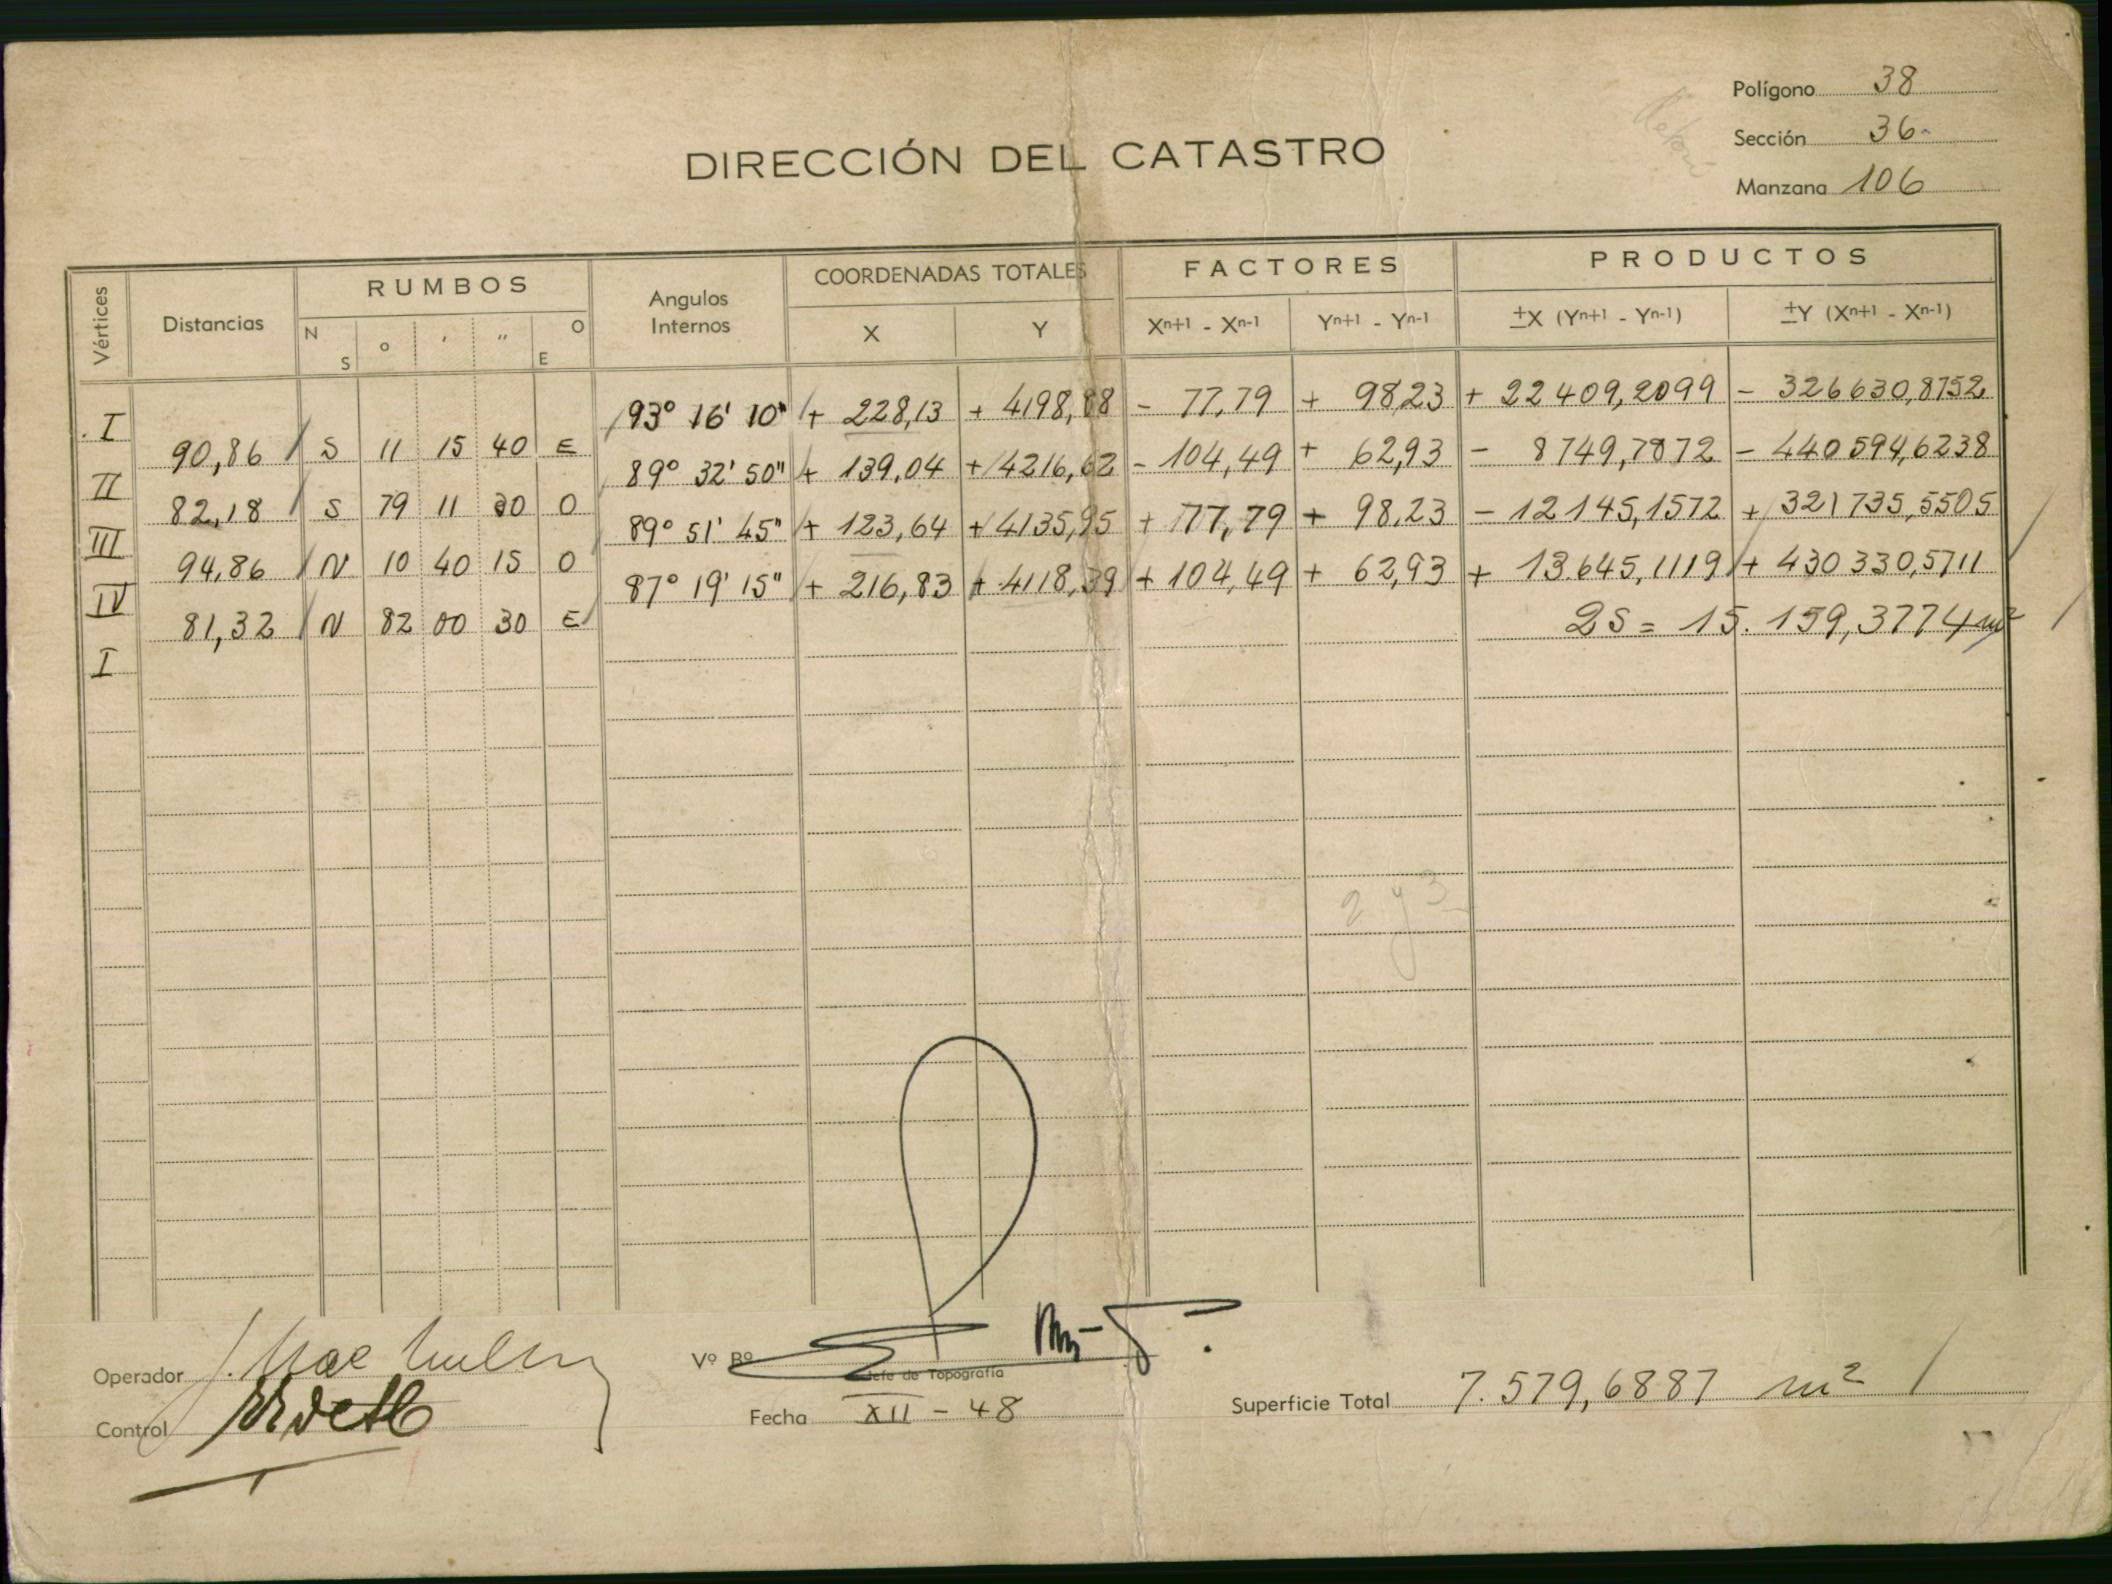 Polígono 38
Sección 36
Manzana 106
DIRECCIÓN DEL CATASTRO
Vértices Distancias RUMBOS Angulos Internos COORDENADAS TOTALES FACTORES PRODUCTOS
N S ° ' " O E X Y Xn+1 - Xn-1 Yn+1 - Yn-1 ±X (Yn+1 - Yn-1) ±Y (Xn+1 - Xn-1)
I 93° 16' 10" + 228,13 + 4198,88 - 77,79 + 98,23 + 22409,2099 - 326630,8752
90,86 S 11 15 40 E
II 89° 32' 50" + 139,04 + 4216,62 - 104,49 + 62,93 - 8749,7872 - 440594,6238
82,18 S 79 11 30 O
III 89° 51' 45" + 123,64 + 4135,95 + 77,79 + 98,23 - 12145,1572 + 321735,5505
94,86 N 10 40 15 O
IV 87° 19' 15" + 216,83 + 4118,39 + 104,49 + 62,93 + 13.645,1119 + 430330,5711
81,32 N 82 00 30 E
2S = 15.159,3774 m²
I
2 y 3
Operador
Vº Bº
Jefe de Topografía
Control
Fecha XII - 48
Superficie Total 7.579,6887 m²